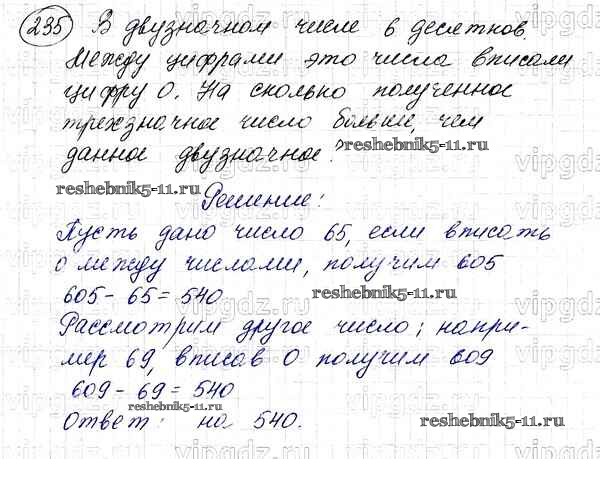 235 В двузначном числе 6 десятков.
Между цифрами это числа вписали
цифру 0. На сколько полученное
трехзначное число больше, чем
данное двузначное?
reshebnik5-11.ru
reshebnik5-11.ru
Решение:
Пусть дано число 65, если вписать
0 между числами, получим 605
605 - 65 = 540
reshebnik5-11.ru
Рассмотрим другое число; напри-
мер 69, вписав 0 получим 609
609 - 69 = 540
reshebnik5-11.ru
Ответ: на 540.
reshebnik5-11.ru
vipgdz.ru